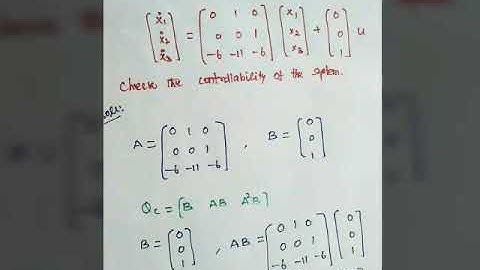 [ẋ₁ ẋ₂ ẋ₃] = [0 1 0; 0 0 1; -6 -11 -6] [x₁ x₂ x₃] + [0 0 1] u
Check the controllability of the system.
Soln:
A = [0 1 0; 0 0 1; -6 -11 -6] , B = [0 0 1]
Qc = [B AB A²B]
B = [0 0 1] , AB = [0 1 0; 0 0 1; -6 -11 -6] [0 0 1]